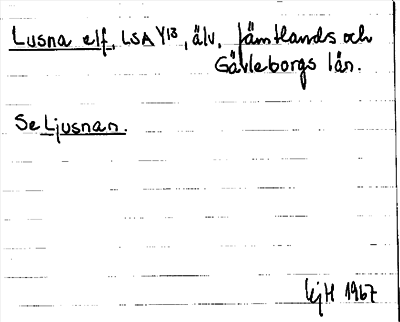 Lusna elf, LSA Y13, älv. Jämtlands och
Gävleborgs län.
Se Ljusnan.
1967